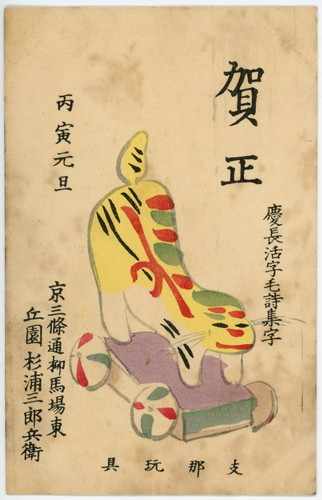 賀正
慶長活字毛詩集字
丙寅元旦
京三條通柳馬場東
丘園 杉浦三郎兵衛
具玩那支